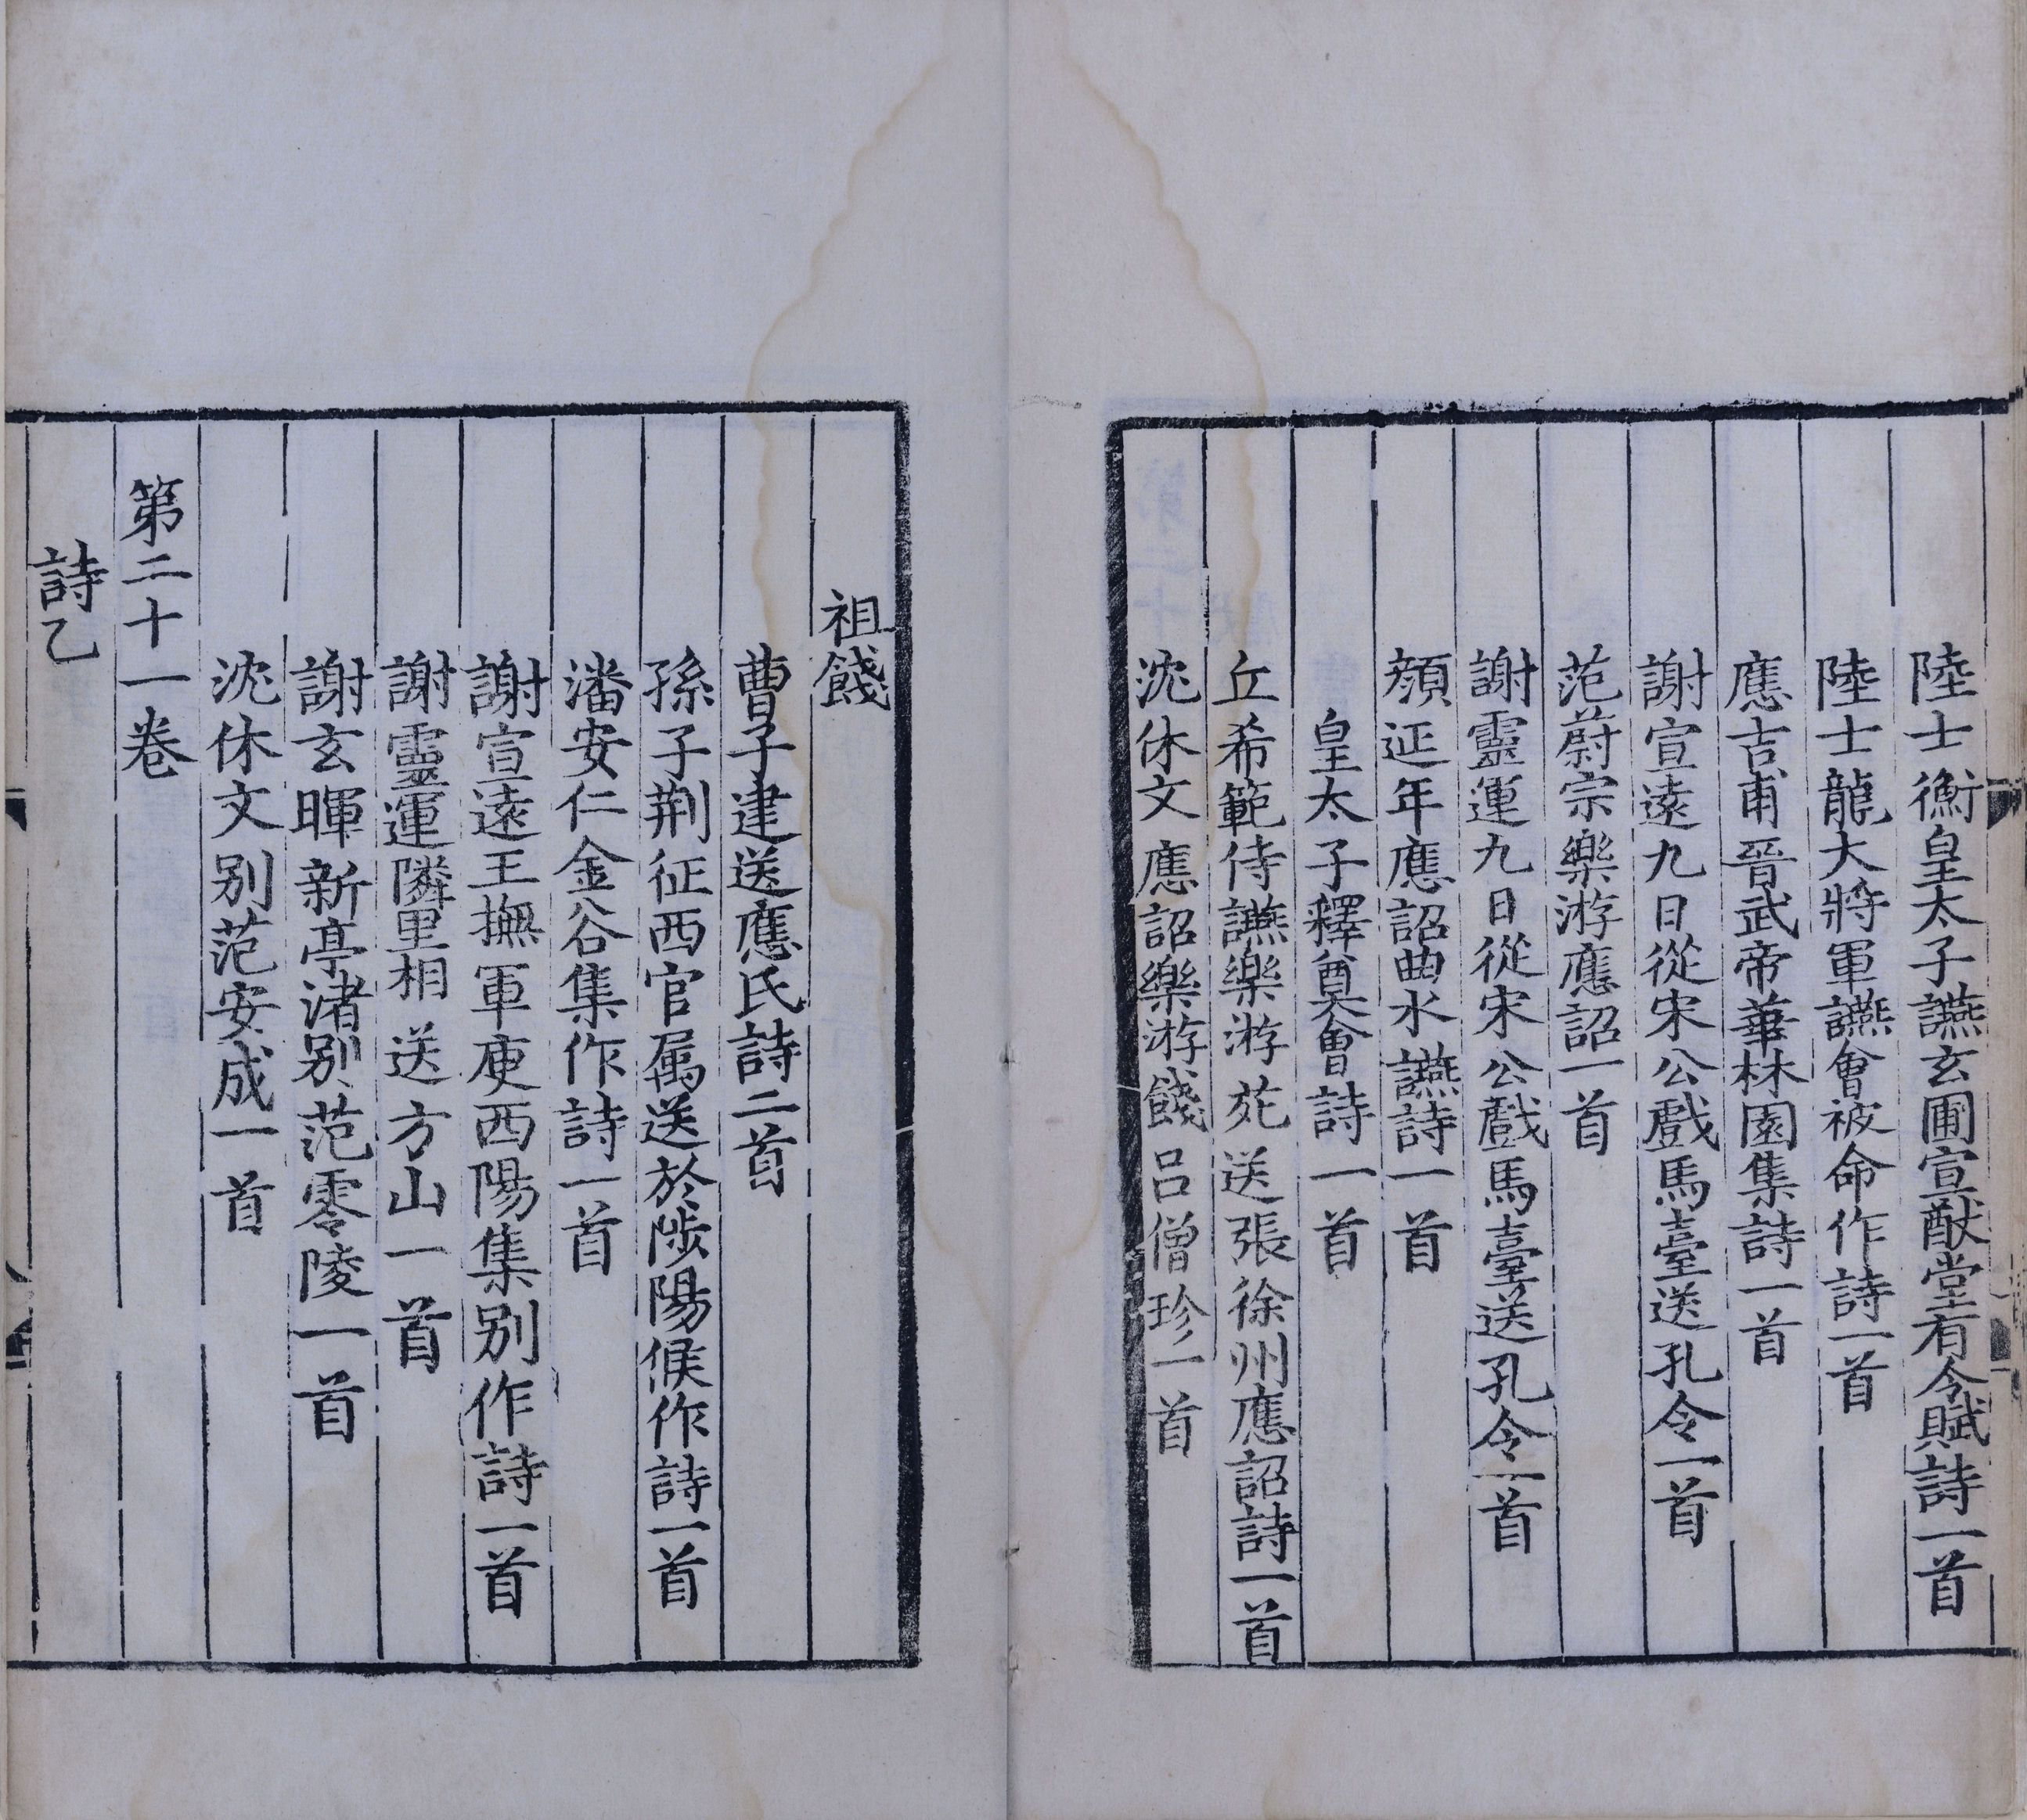 陸士衡皇太子讌玄圃宣猷堂有令賦詩一首
陸士龍大將軍讌會被命作詩一首
應吉甫晉武帝華林園集詩一首
謝宣遠九日從宋公戲馬臺送孔令一首
范蔚宗樂游應詔一首
謝靈運九日從宋公戲馬臺送孔令一首
顏延年應詔曲水讌詩一首
皇太子釋奠會詩一首
丘希範侍讌樂游苑送張徐州應詔詩一首
沈休文應詔樂游餞呂僧珍一首
祖餞
曹子建送應氏詩二首
孫子荆征西官属送於陟陽候作詩一首
潘安仁金谷集作詩一首
謝宣遠王撫軍庾西陽集别作詩一首
謝靈運隣里相送方山一首
謝玄暉新亭渚别范零陵一首
沈休文别范安成一首
第二十一卷
詩乙